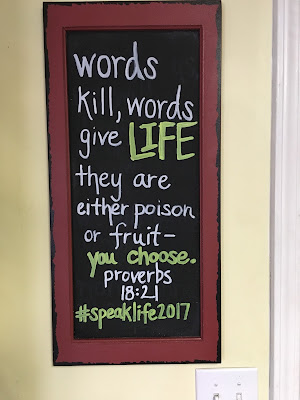 words
kill, words
give LIFE
they are
either poison
or fruit-
you choose.
proverbs
18:21
#speaklife2017